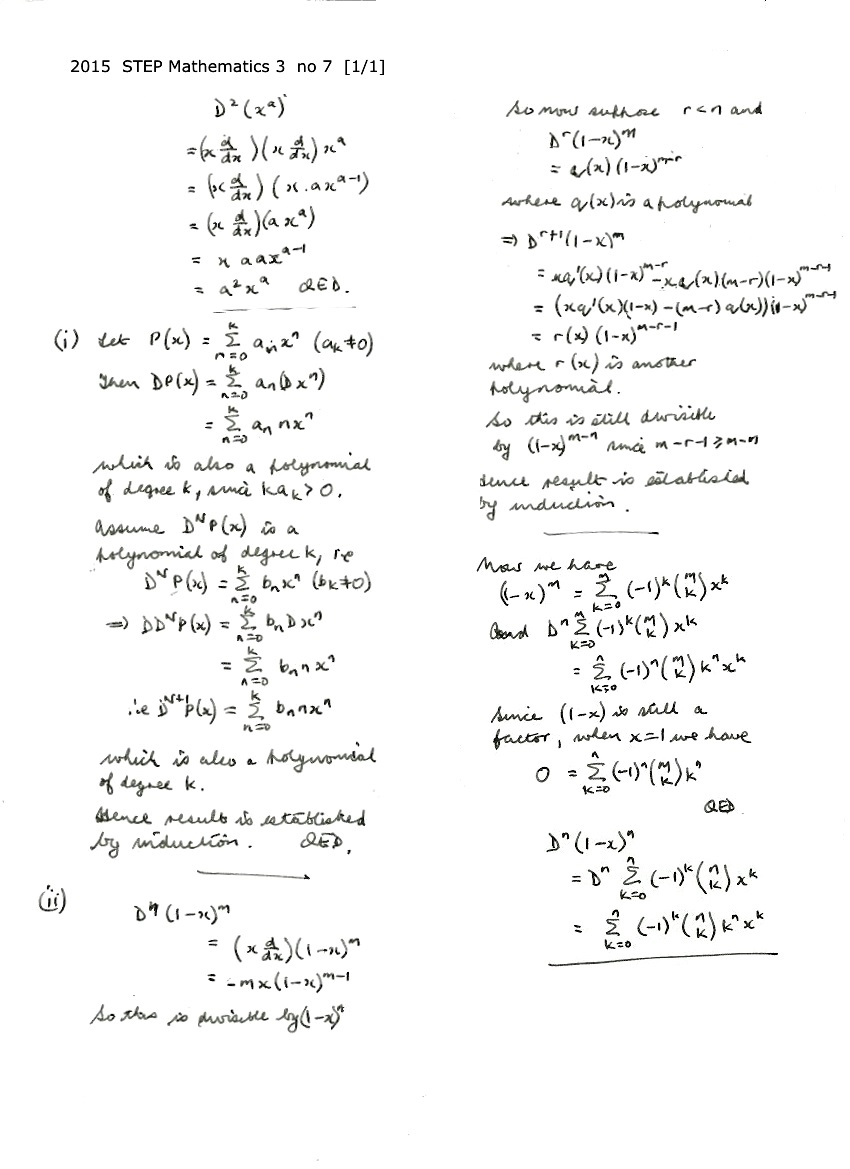 2015 STEP Mathematics 3 no 7 [1/1]
D²(xᵃ)
= (x d/dx)(x d/dx) xᵃ
= (x d/dx)(x.axᵃ⁻¹)
= (x d/dx)(a xᵃ)
= x aaxᵃ⁻¹
= a²xᵃ QED.
(i) Let P(x) = Σ_{n=0}^{k} aₙxⁿ (a_k≠0)
Then DP(x) = Σ_{n=0}^{k} aₙ(Dxⁿ)
= Σ_{n=0}^{k} aₙ nxⁿ
which is also a polynomial
of degree k, since ka_k > 0.
Assume D^N P(x) is a
polynomial of degree k, ie
D^N P(x) = Σ_{n=0}^{k} bₙxⁿ (b_k≠0)
⇒ DD^N P(x) = Σ_{n=0}^{k} bₙ D xⁿ
= Σ_{n=0}^{k} bₙ n xⁿ
i.e D^{N+1} P(x) = Σ_{n=0}^{k} bₙ nxⁿ
which is also a polynomial
of degree k.
Hence result is established
by induction. QED.
(ii)
Dⁿ (1-x)^m
= (x d/dx)(1-x)^m
= -mx(1-x)^{m-1}
So this is divisible by (1-x)ⁿ
So now suppose r<n and
D^r(1-x)^m
= q(x) (1-x)^{m-r}
where q(x) is a polynomial
⇒ D^{r+1}(1-x)^m
= xq'(x)(1-x)^{m-r} - xq(x)(m-r)(1-x)^{m-r-1}
= (xq'(x)(1-x) - (m-r) q(x))(1-x)^{m-r-1}
= r(x) (1-x)^{m-r-1}
where r(x) is another
polynomial.
So this is still divisible
by (1-x)^{m-n} since m-r-1 ≥ m-n
Hence result is established
by induction.
Now we have
(1-x)^m = Σ_{k=0}^{m} (-1)^k (m k) x^k
and Dⁿ Σ_{k=0}^{m} (-1)^k (m k) x^k
= Σ_{k=0}^{n} (-1)ⁿ (m k) kⁿx^k
Since (1-x) is still a
factor, when x=1 we have
0 = Σ_{k=0}^{n} (-1)ⁿ (m k) kⁿ
QED
Dⁿ(1-x)ⁿ
= Dⁿ Σ_{k=0}^{n} (-1)^k (n k) x^k
= Σ_{k=0}^{n} (-1)^k (n k) kⁿx^k